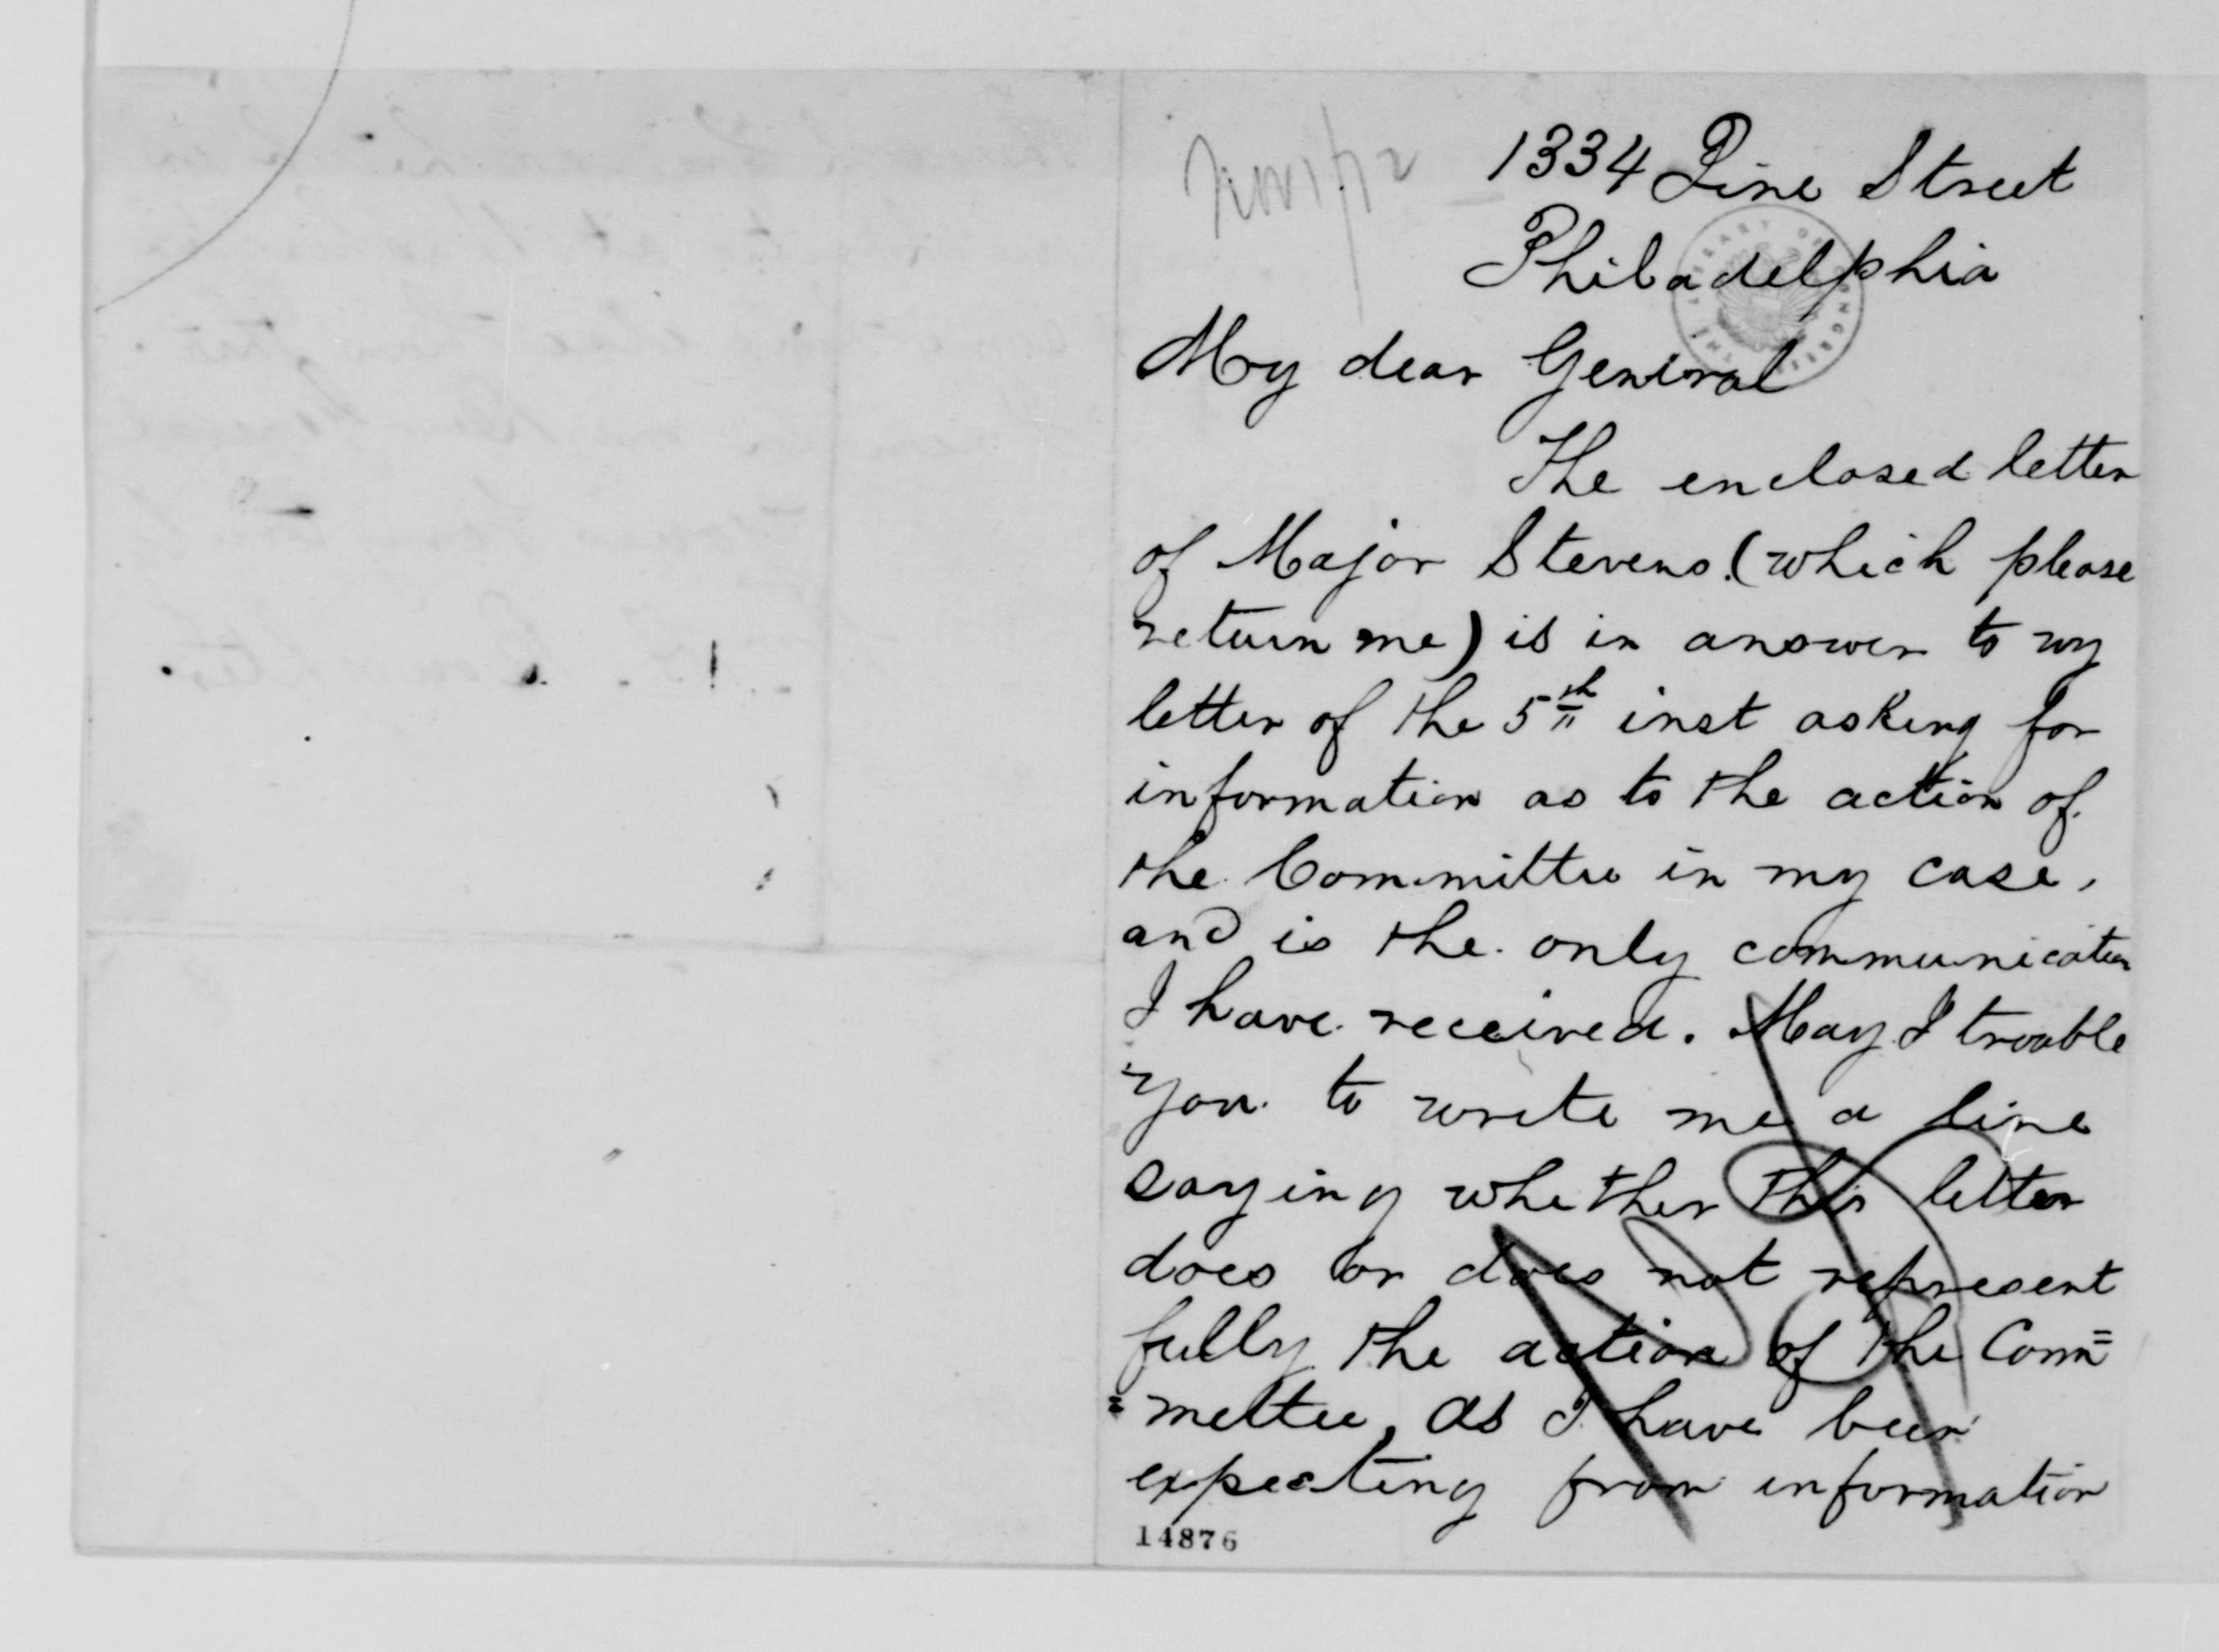 1334 Pine Street
Philadelphia
My dear General
The enclosed letter
of Major Stevens (which please
return me) is in answer to my
letter of the 5th inst asking for
information as to the action of
the Committee in my case,
and is the only communication
I have received. May I trouble
you to write me a line
saying whether this letter
does or does not represent
fully the action of the Com=
=mittee, as I have been
expecting from information
14876